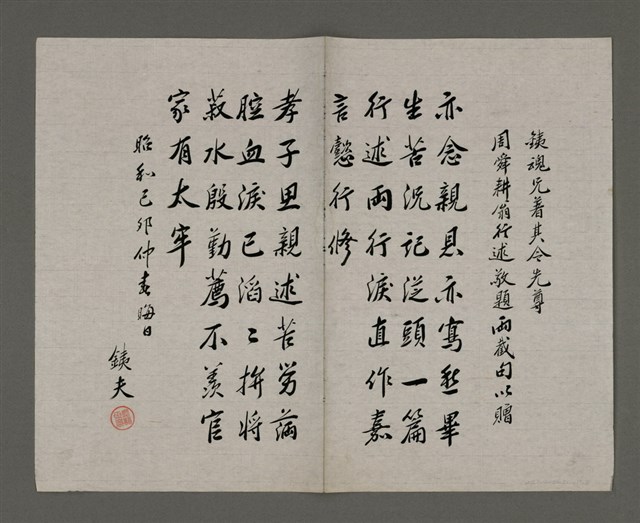 銕魂兄著其令先尊
周舜耕翁行述敬題兩截句以贈
亦念親恩亦寫愁畢
生苦況記從頭一篇
行述兩行淚直作嘉
言懿行修
孝子思親述苦勞滿
腔血淚已滔〻拚將
菽水殷勤薦不羨官
家有太牢
昭和己卯仲春晦日
銕夫